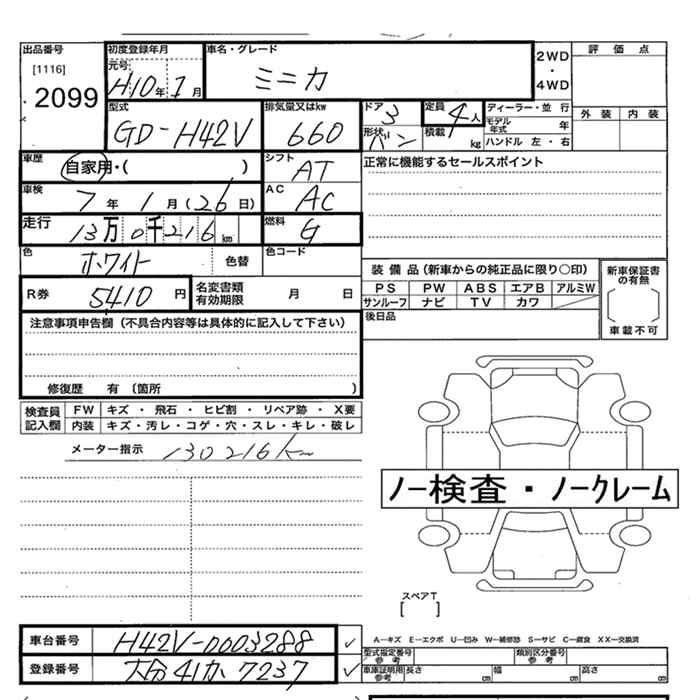 出品番号
[1116]
2099
初度登録年月
元号
H10年1月
車名・グレード
ミニカ
2WD
・
4WD
評価点
外装 内装
型式
GD-H42V
排気量又はkw
660
ドア
3
形状
バン
定員
4人
積載
kg
ディーラー・並行
モデル年式 年
ハンドル 左・右
車歴
自家用・( )
シフト
AT
正常に機能するセールスポイント
車検
7年1月(26日)
AC
AC
走行
13万0千216km
燃料
G
色
ホワイト
色替
色コード
R券
5410円
名変書類
有効期限
月 日
装備品(新車からの純正品に限り○印)
PS PW ABS エアB アルミW
サンルーフ ナビ TV カワ
後日品
新車保証書
の有無
車載不可
注意事項申告欄(不具合内容等は具体的に記入して下さい)
修復歴 有(箇所 )
検査員
記入欄
FW キズ・飛石・ヒビ割・リペア跡・X要
内装 キズ・汚レ・コゲ・穴・スレ・キレ・破レ
メーター指示 130216km
ノー検査・ノークレーム
スペアT
[ ]
車台番号
H42V-0003288
登録番号
大分41か7237
A―キズ E―エクボ U―凹み W―補修跡 S―サビ C―腐食 XX―交換済
型式指定番号
参考
類別区分番号
参考
車庫証明用
参考
長さ cm 幅 cm 高さ cm